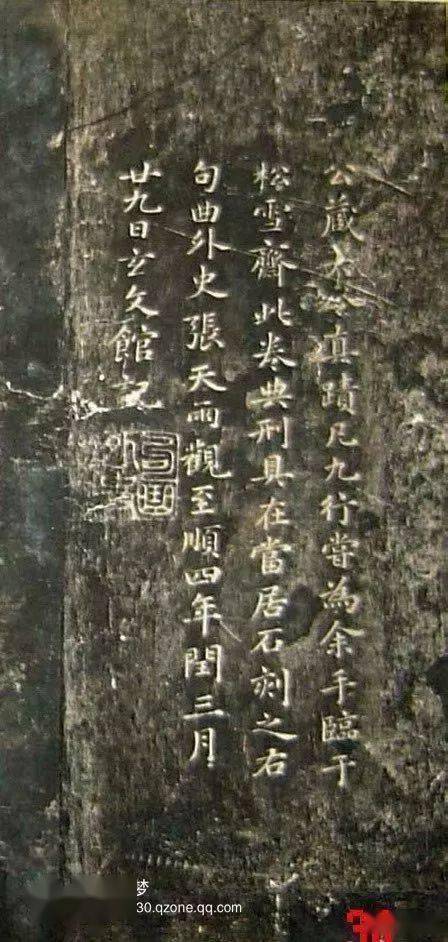 公藏大令真蹟凡九行嘗為余手臨于
松雪齋此卷典刑具在當居石刻之右
句曲外史張天雨觀至順四年閏三月
廿九日玄文館記
句曲外史
梦
30.qzone.qq.com